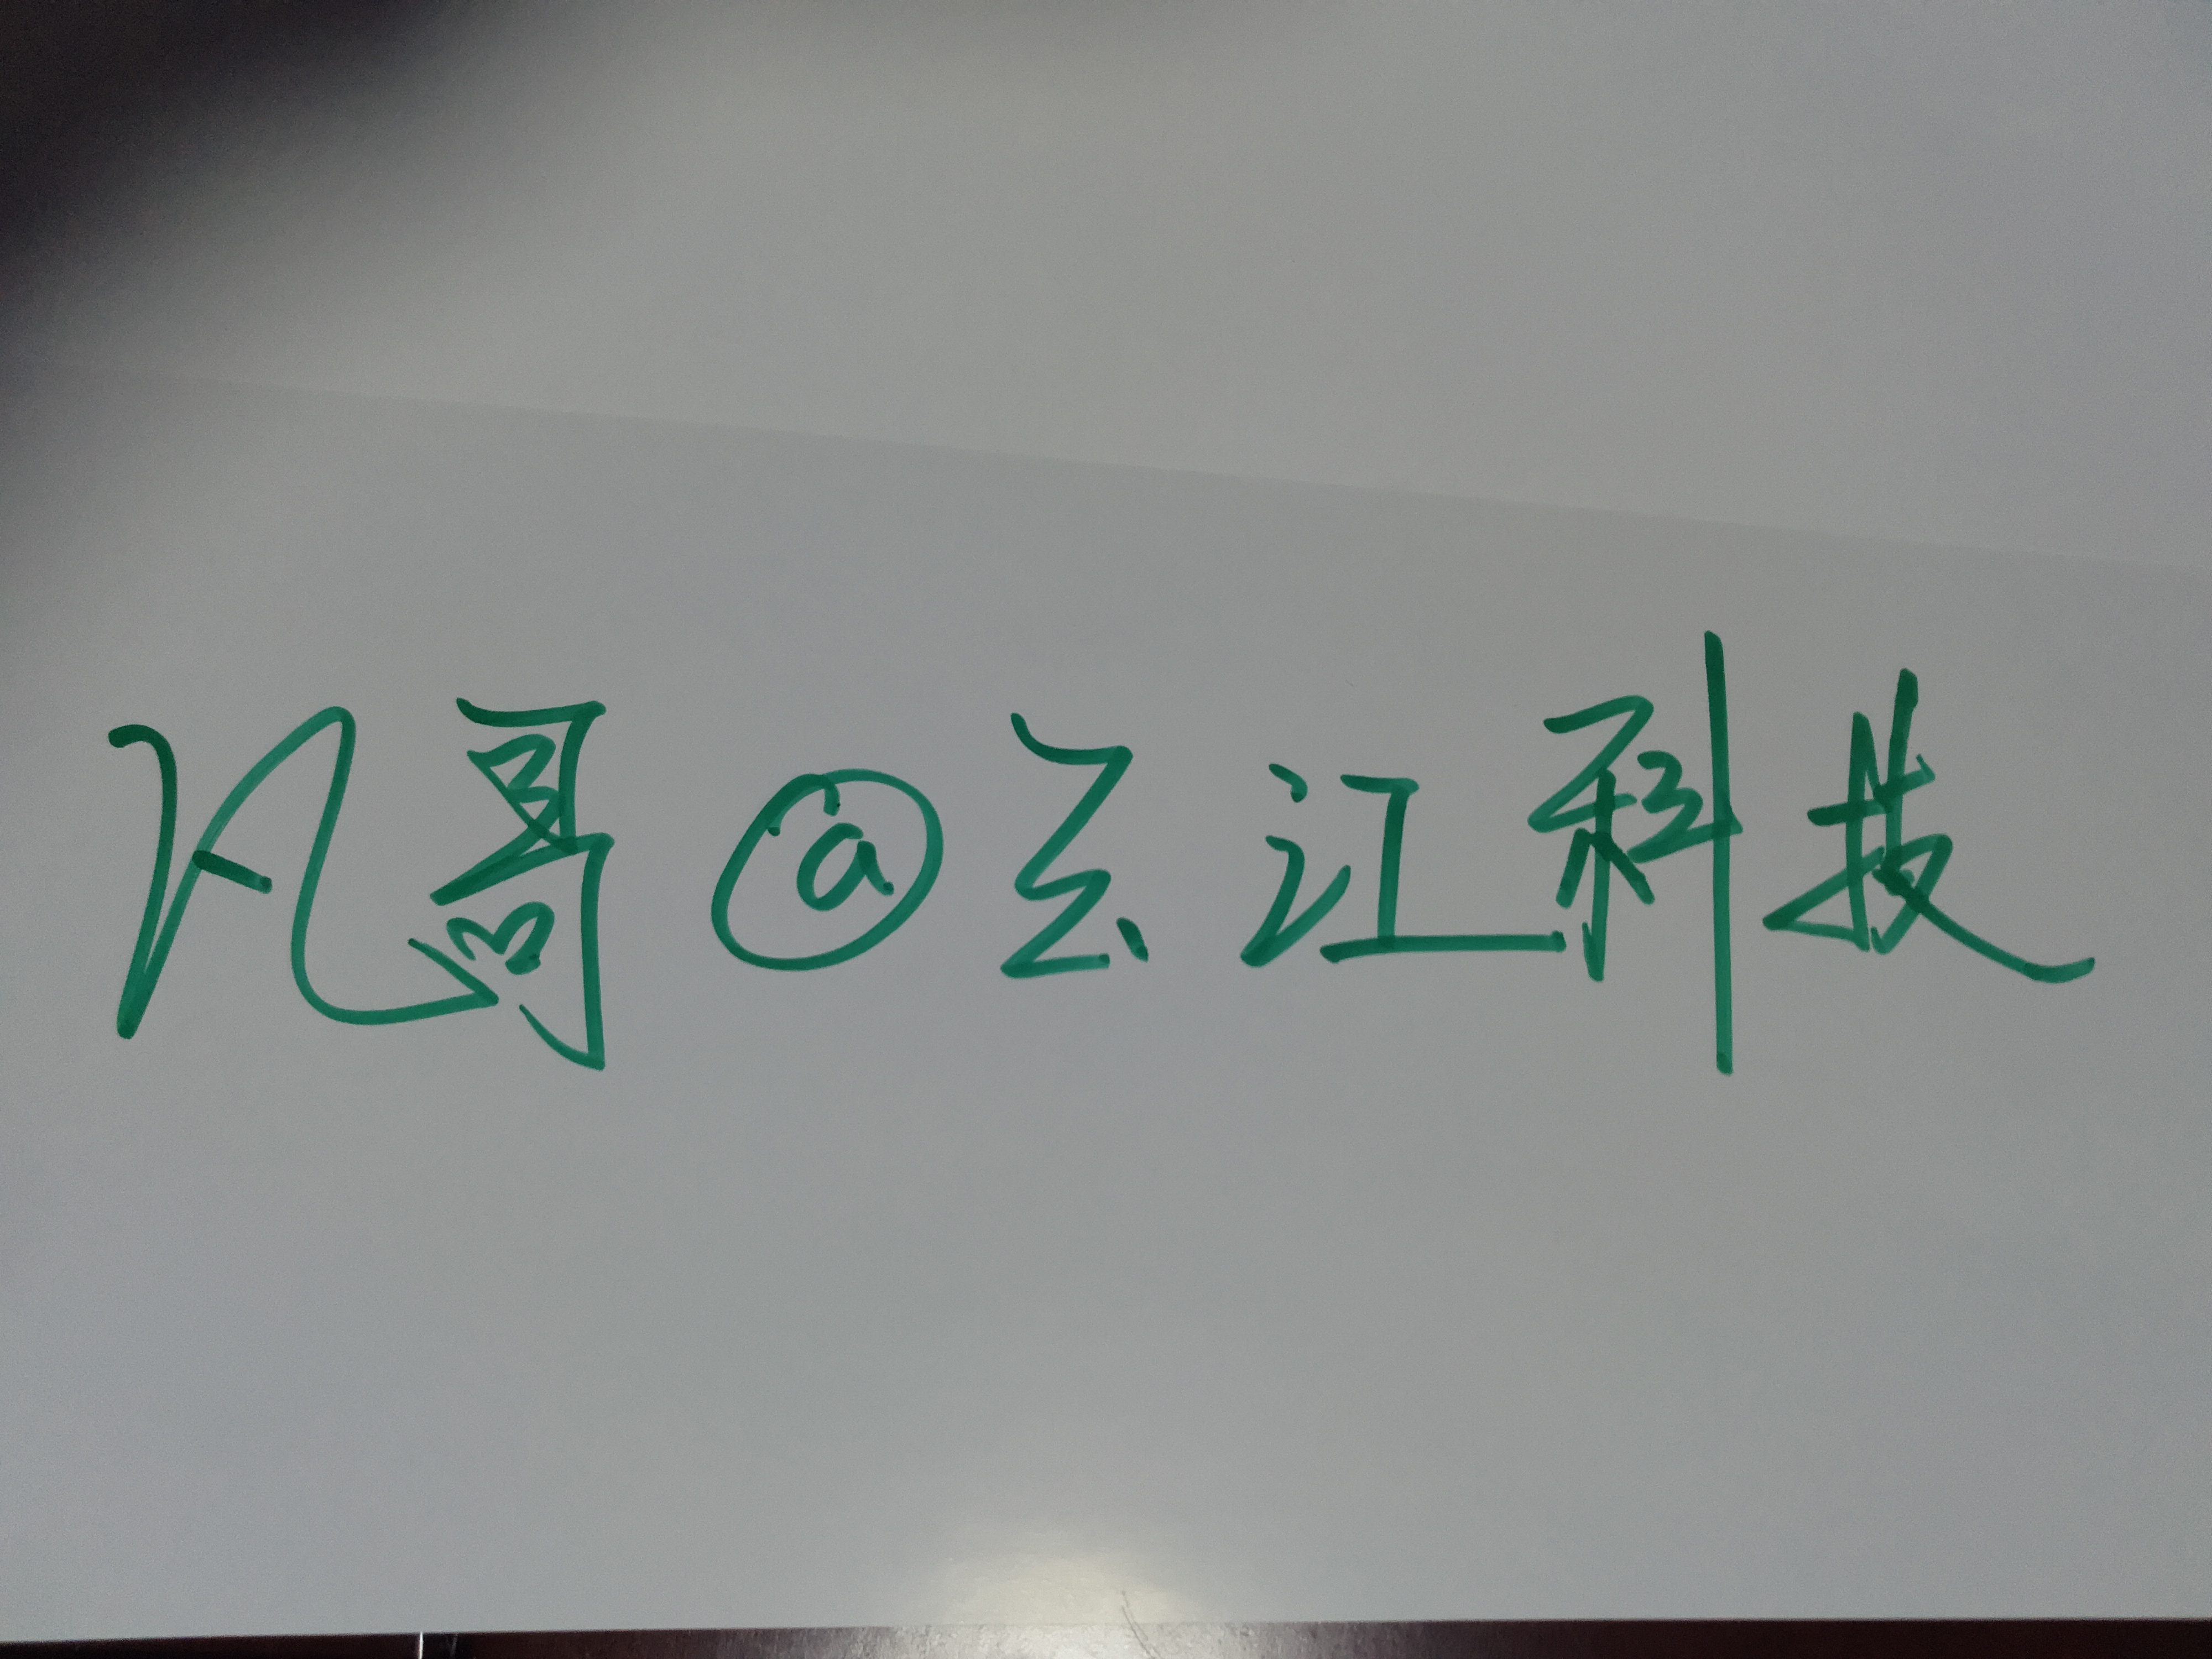 凡哥@云江科技